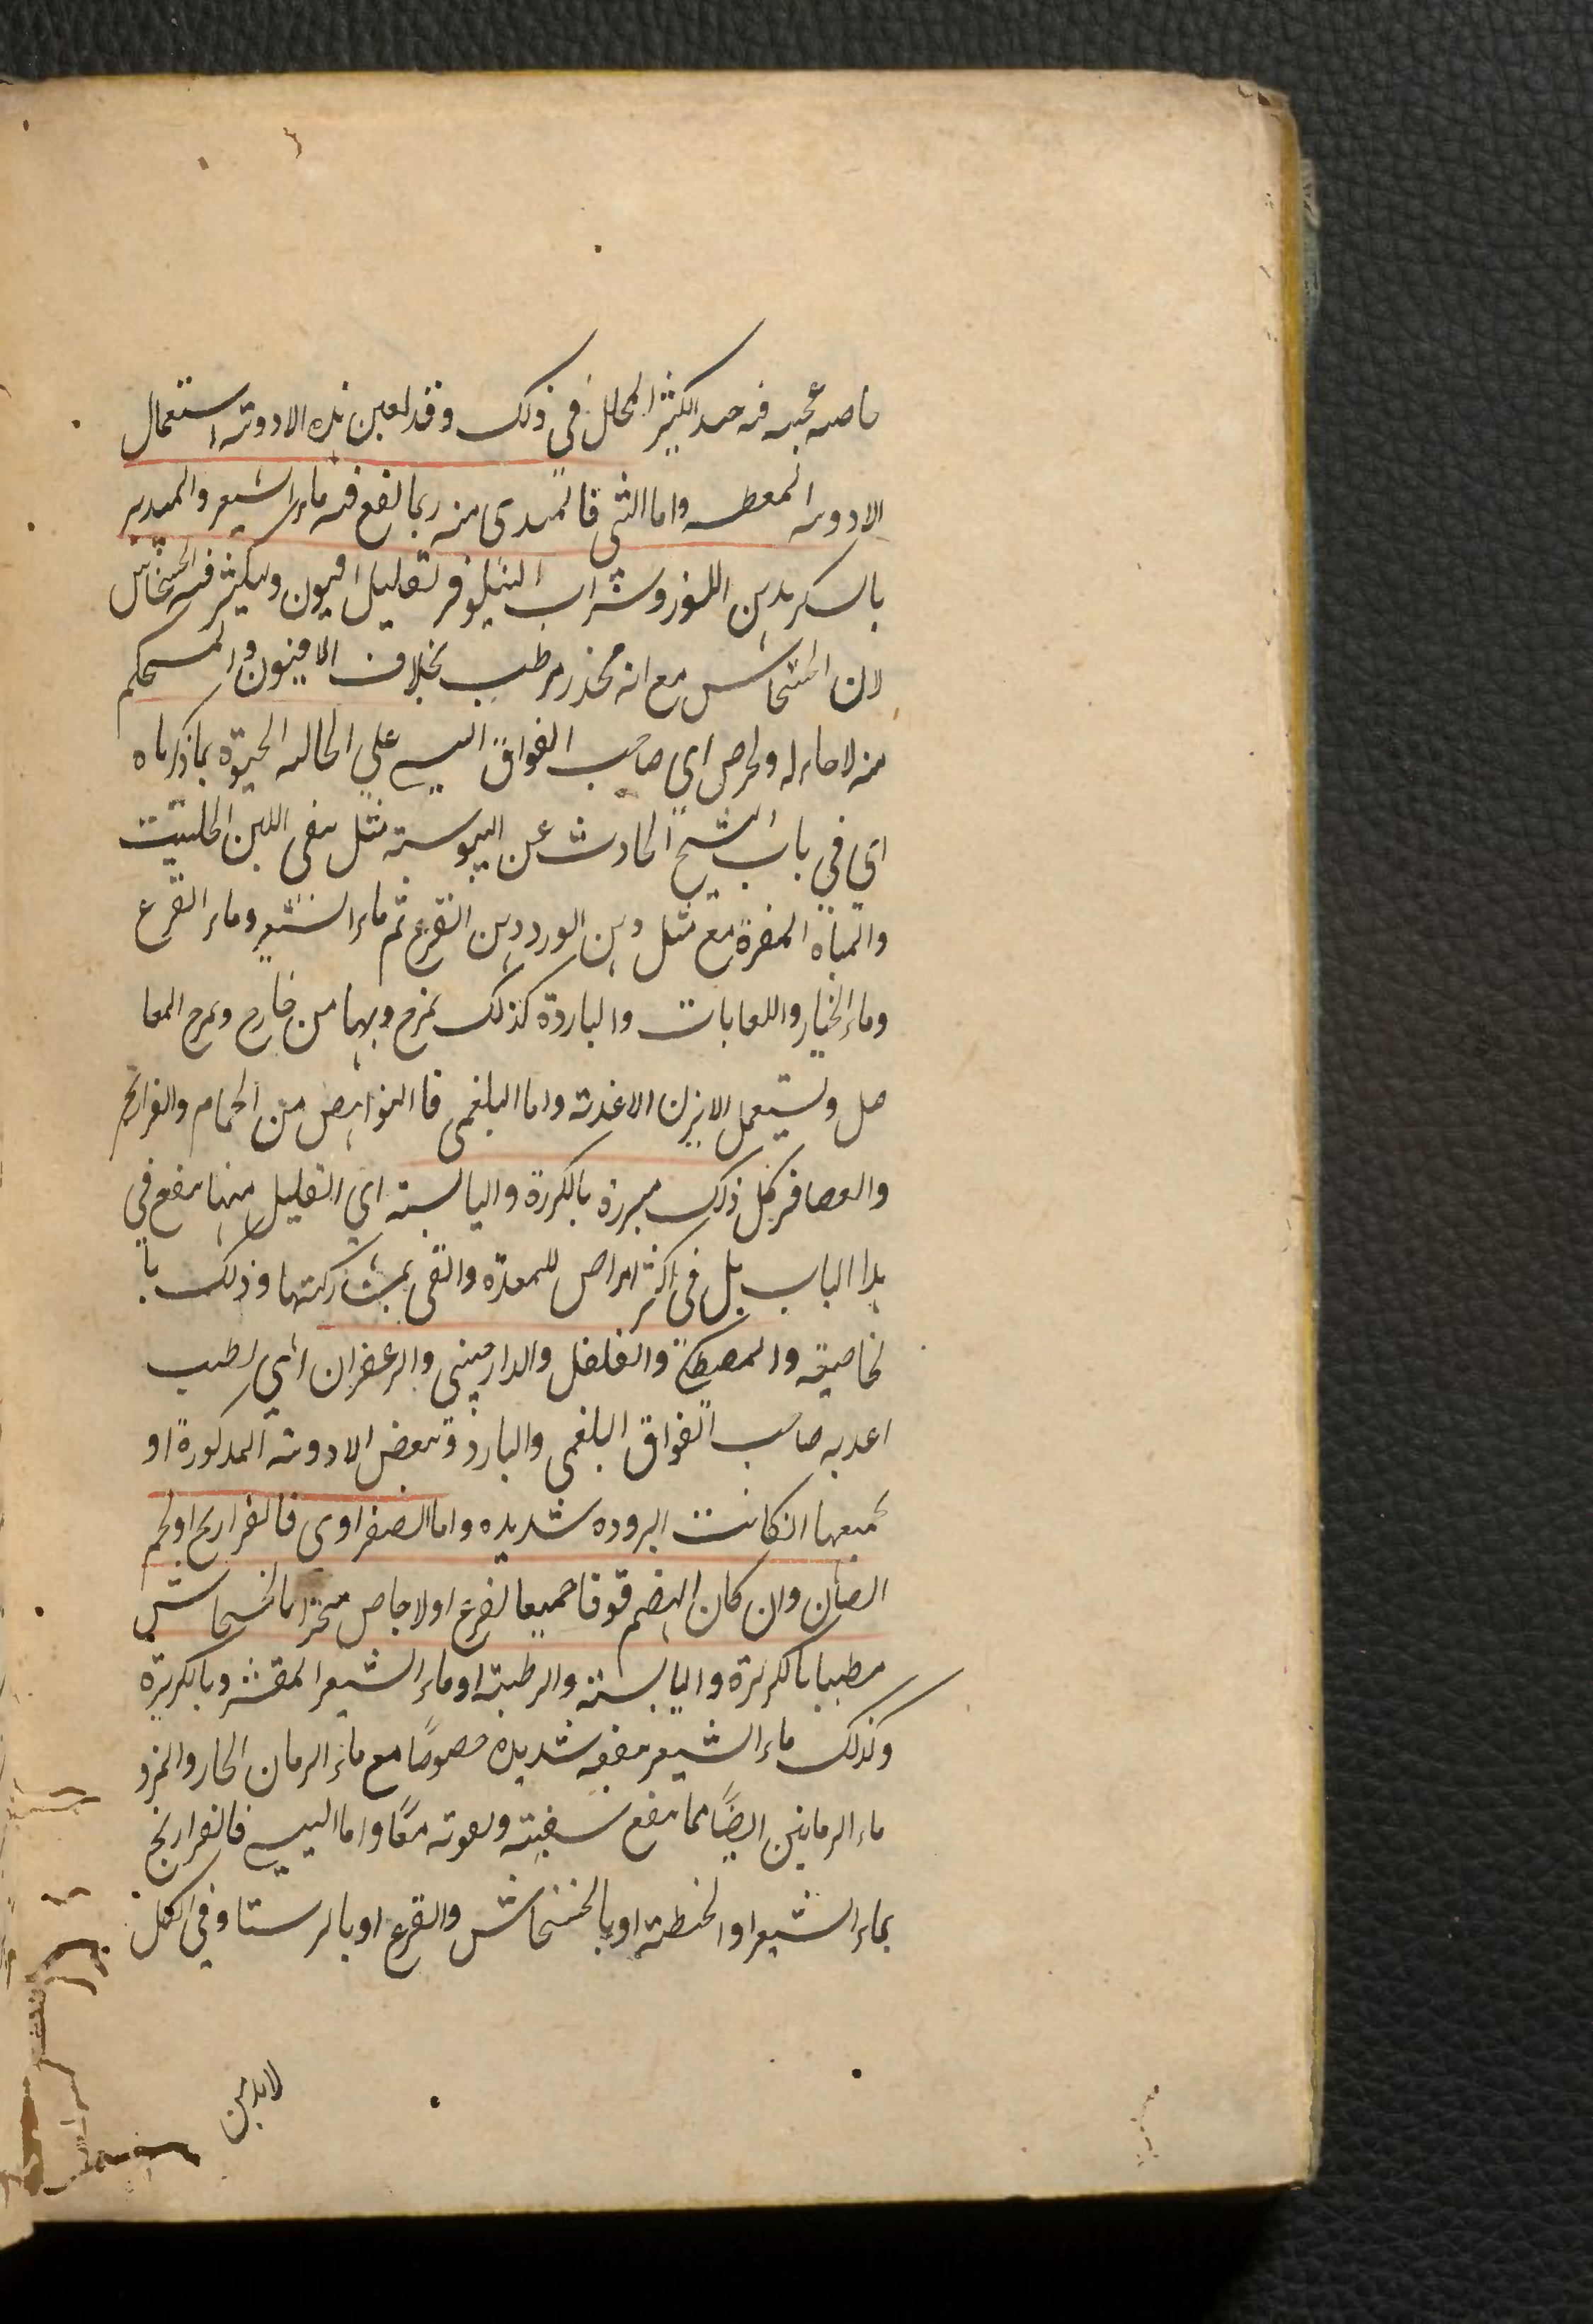 خاصه عجيبه فيه حمد الكثير المحلل في ذلك وقد يعين هذه الادويه استعمال
الادويه المعطسه واما الثي فالمبتدى منه ربما نفع فيه ماء الشعير والمدبر
بالسكر بدهن اللوز وشراب النيلوفر بقليل افيون ويكثر فيه الخشخاش
لان الخشخاش مع انه مخدر مرطب بخلاف الافيون والمستحكم
منه لا حاء له وليحرص اي صاحب الفواق اليبسي علي الحاله الحيوة بما ذكرناه
اي في باب التشنج الحادث عن اليبوسته مثل سقى اللبن الحليب
والمياه المفرة مع مثل دهن الورد دهن القرع ثم ماء الشعير وماء القرع
وماء الخيار واللعابات والباردة كذلك تمزج وبهما من خارج وتمرخ المفا
صل وتستعمل الابزن الاغذيه واما البلغمى فالنواهض من الحمام والفراريج
والعصافر كل ذلك مبزرة بالكزبرة واليابسته اي القليل منها ينفع في
هذا الباب بل في اكثر امراض للمعدة والتى بمشاركتها وذلك با
لخاصية والمصطكى والفلفل والدارصينى والزعفران اي يطيب
اغذيه صاحب الفواق البلغمى والبارد وببعض الادويه المذكورة او
بجميعها انكانت البروده شديده واما الصفراوى فالفراريح او لحم
الضأن وان كان الهضم قوفا جميعا لقرع اولاجاص مبزرا بالخشخاش
مطيبا بالكزبرة واليابسته والرطبته او ماء الشعير المقشر وبالكزبرة
وكذلك ماء الشعير منفعه شديده خصوصًا مع ماء الرمان الحار والمزو
ماء الرمانين ايضًا مما ينفع سفيته وبعوته معًا واما اليبسي فالفراريج
بماء الشعير او الحنطته او بالخشخاش والقرع او بالرستا وفي الكل
لابد من